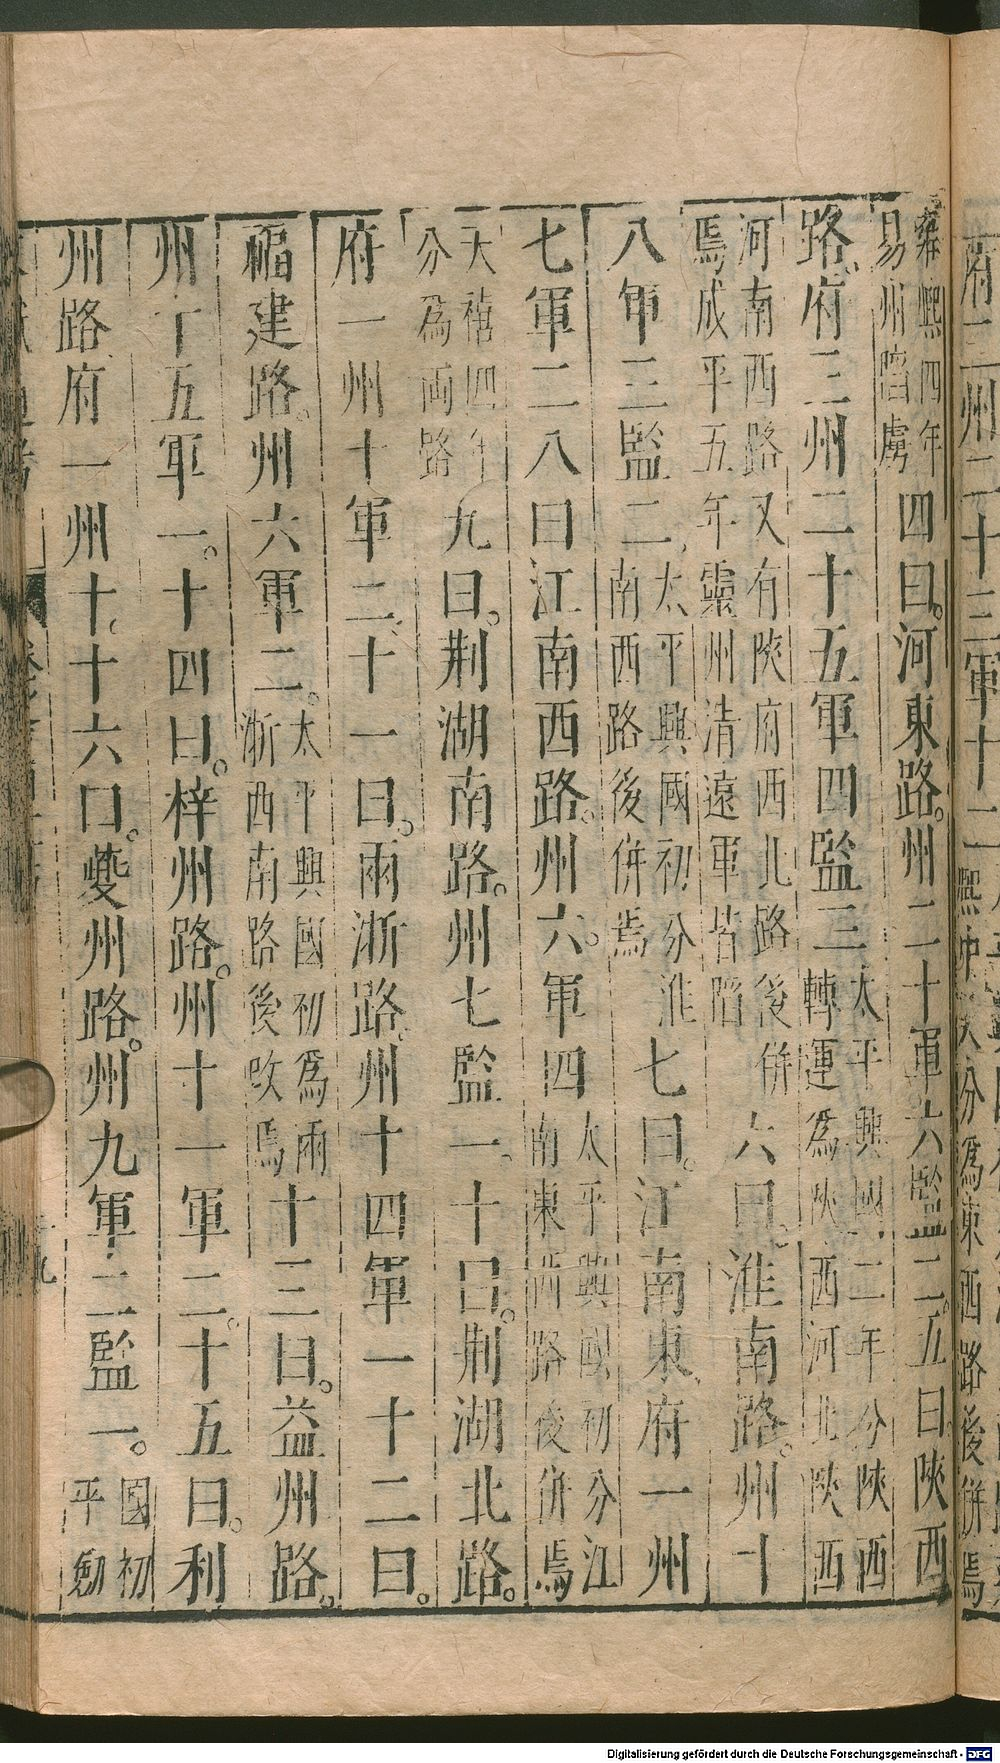 府二州二十三軍十二
熙中又分爲東西路後併焉
雍熙四年
易州陷虜
四曰。河東路。州二十軍六監二。五曰陜西
路。府三州二十五軍四監三
太平興國二年分陜西
轉運爲陜西河北陜西
河南西路又有陜府西北路後併
焉咸平五年靈州清遠軍皆陷
六曰。淮南路。州十
八軍三監二
太平興國初分淮
南西路後併焉
七曰。江南東府一州
七軍二八曰江南西路。州六。軍四
太平興國初分江
南東西路後併焉
天禧四年
分為両路
九曰。荆湖南路。州七監一。十曰。荆湖北路。
府一州十軍二十一曰。兩浙路州十四軍一十二曰。
福建路。州六軍二。
太平興國初爲兩
浙西南路後改焉
十三曰。益州路。
州十五軍一。十四曰。梓州路。州十一軍二。十五曰。利
州路府一州十。十六曰。夔州路。州九軍二監一。
國初
平劒
Digitalisierung gefördert durch die Deutsche Forschungsgemeinschaft - DFG